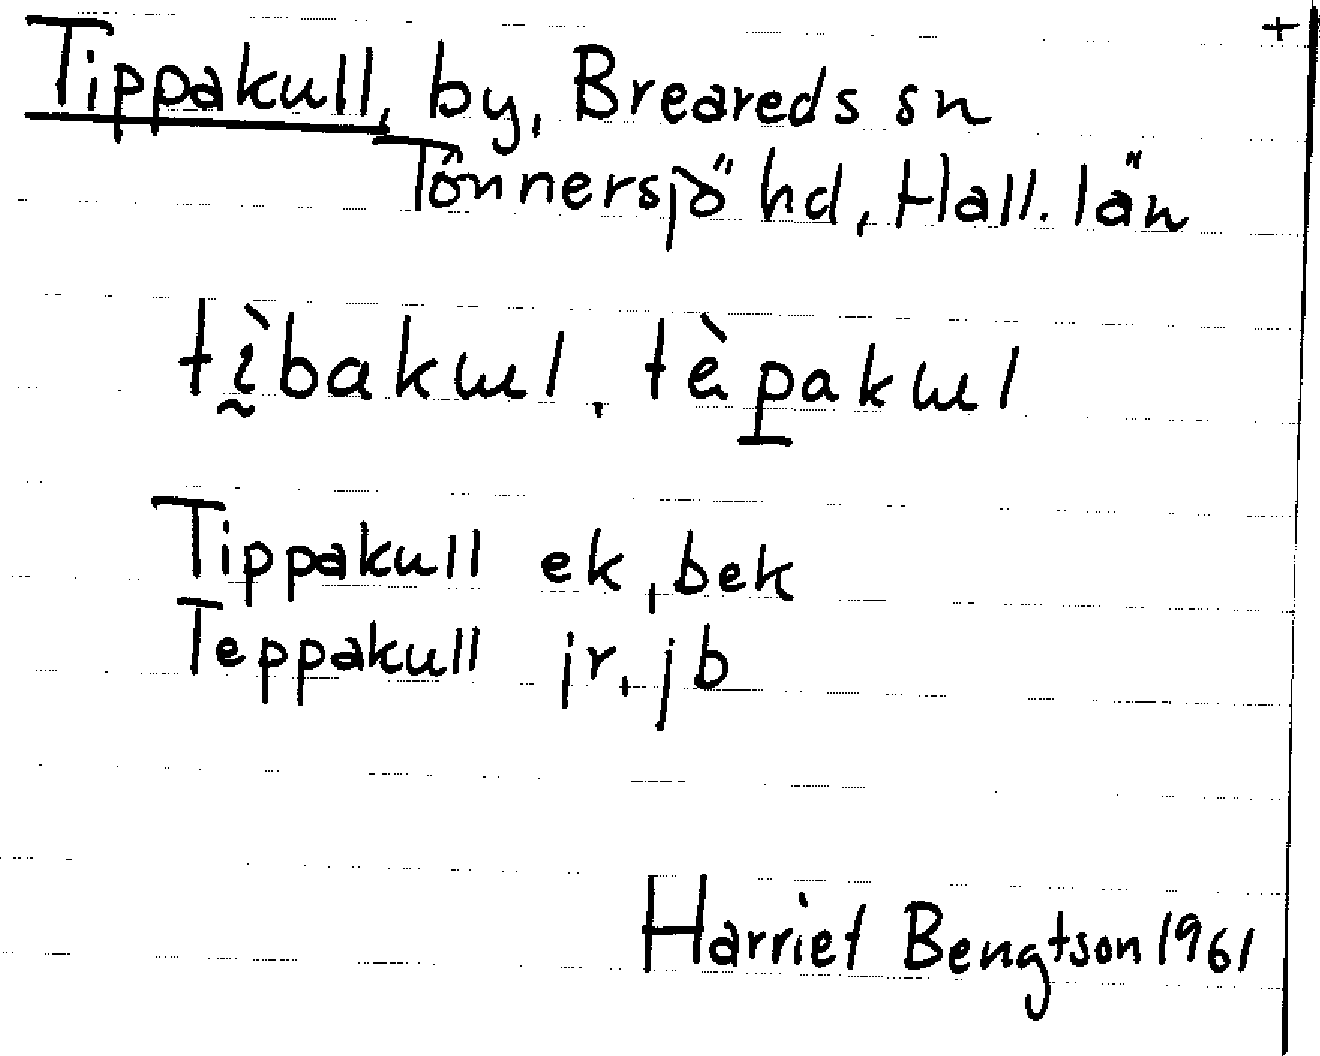 +
Tippakull, by, Breareds sn
Tönnersjö hd, Hall. län
tìbakɯl, tèpakɯl
Tippakull ek, bek
Teppakull jr, jb
Harriet Bengtson 1961